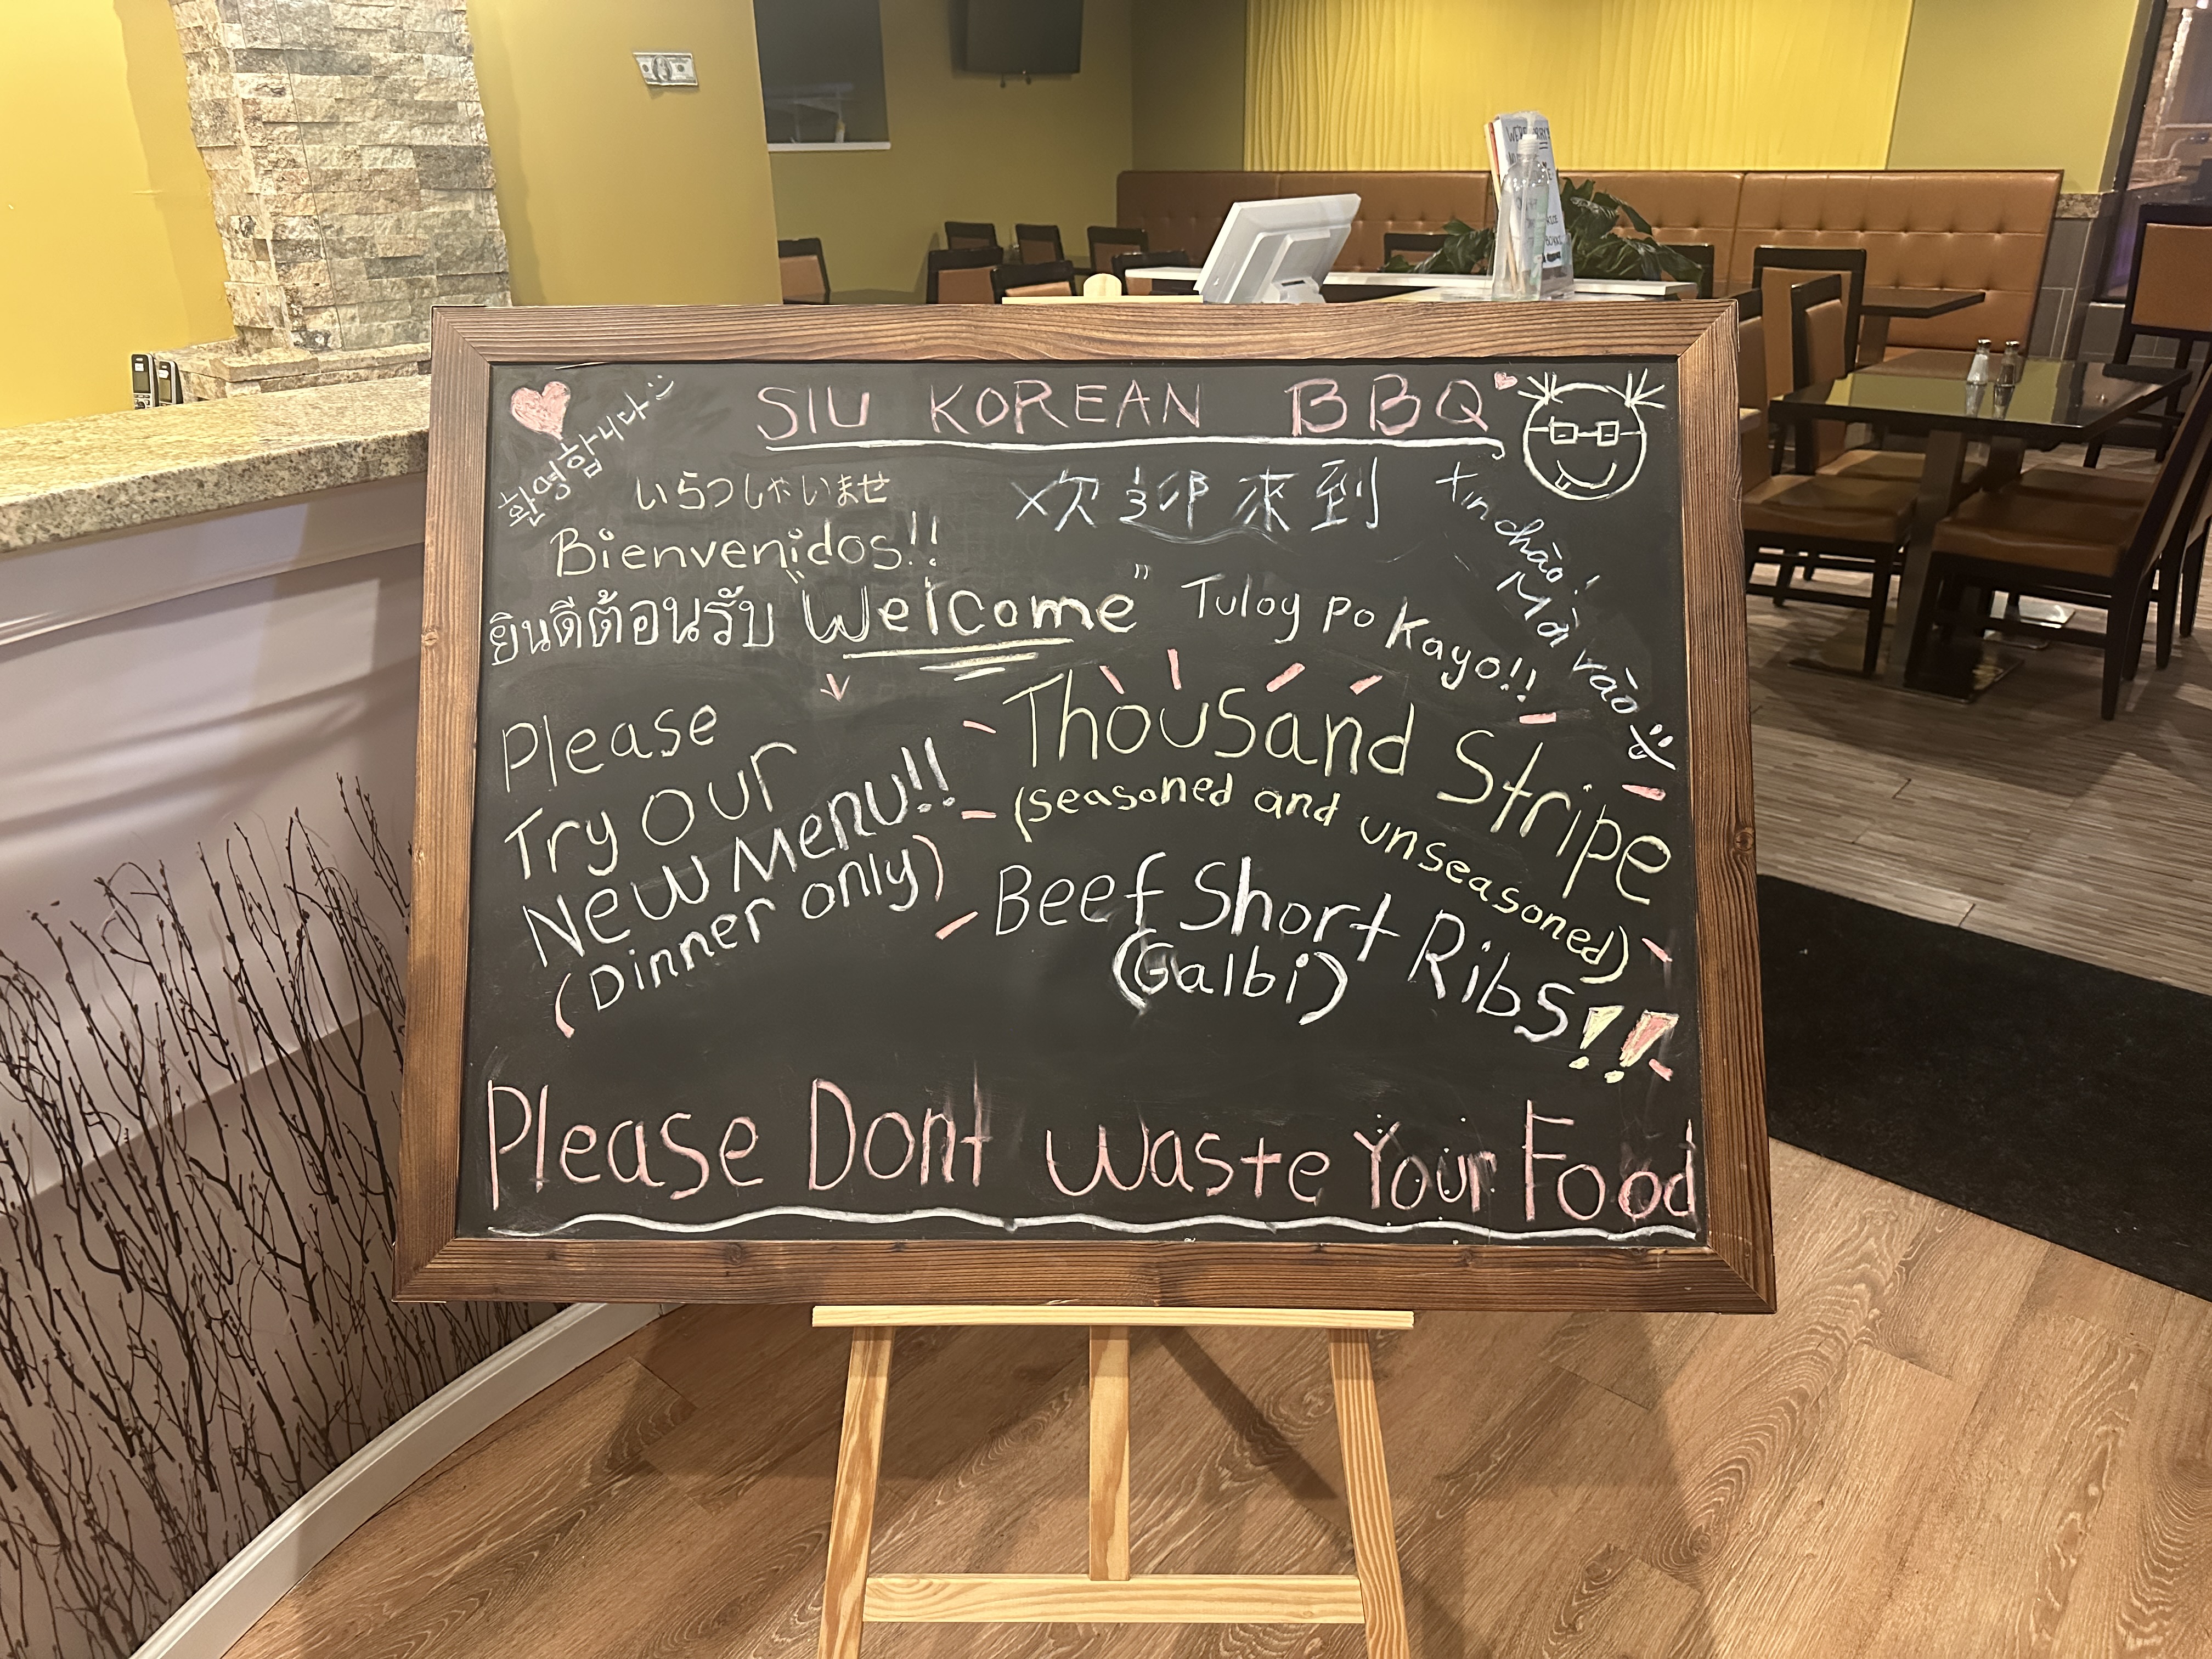 SIU KOREAN BBQ
환영합니다
いらっしゃいませ
欢迎來到
Xin chào!
Mời vào
Bienvenidos!!
ยินดีต้อนรับ
"Welcome"
Tuloy Po Kayo!!
Please
Try Our
New Menu!!
(Dinner only)
Thousand Stripe
(seasoned and unseasoned)
Beef Short Ribs!!
(Galbi)
Please Dont Waste Your Food